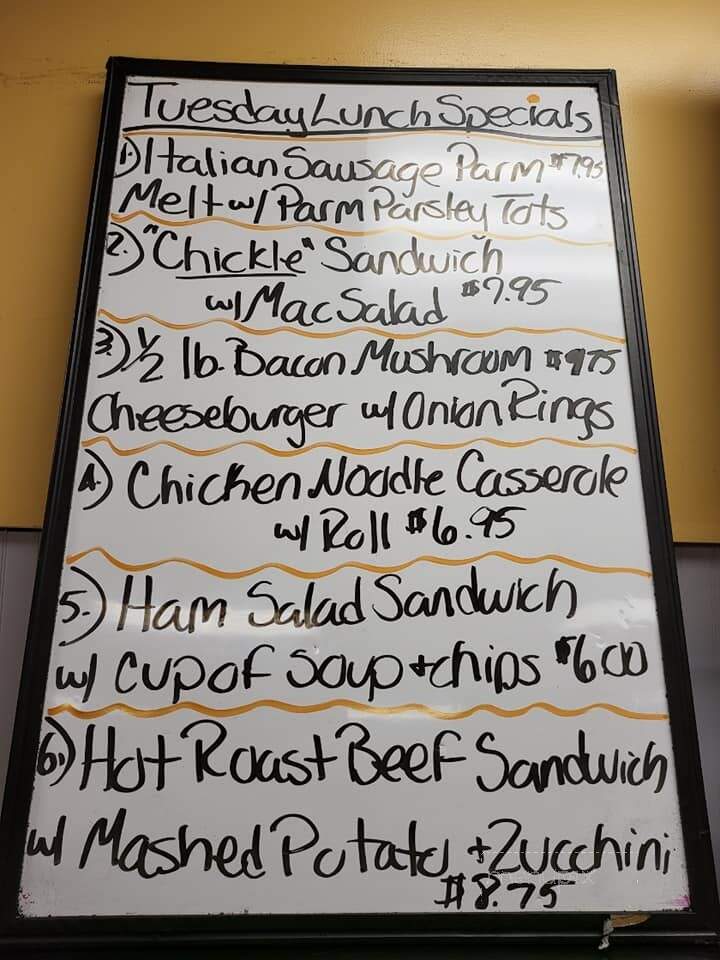 Tuesday Lunch Specials
1.) Italian Sausage Parm $7.95
Melt w/ Parm Parsley Tots
2.) "Chickle" Sandwich
w/ Mac Salad $7.95
3.) 1/2 lb. Bacon Mushroom $9.75
Cheeseburger w/ Onion Rings
4.) Chicken Noodle Casserole
w/ Roll $6.95
5.) Ham Salad Sandwich
w/ Cup of Soup + chips $6.00
6.) Hot Roast Beef Sandwich
w/ Mashed Potato + Zucchini
$8.75